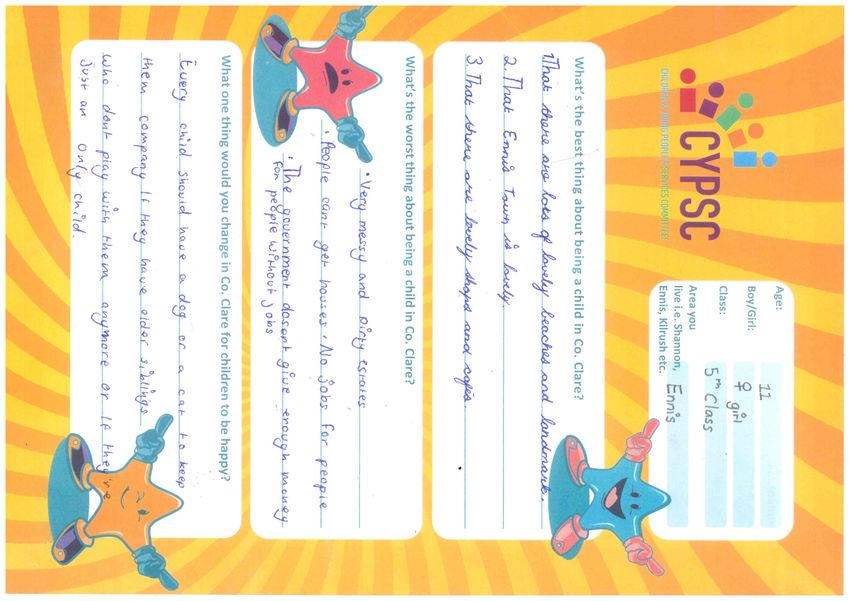 CYPSC
CHILDREN & YOUNG PEOPLE'S SERVICES COMMITTEES
Age: 11
Boy/Girl: ♀ girl
Class: 5th Class
Area you
live i.e. Shannon,
Ennis, Kilrush etc. Ennis
What's the best thing about being a child in Co. Clare?
1. That there are lots of lovely beaches and landmark.
2. That Ennis Town is lovely
3. That there are lovely shops and cafés.
What's the worst thing about being a child in Co. Clare?
• Very messy and dirty estates
• People cant get houses • No jobs for people
• The government dosent give enough money
for people without jobs
What one thing would you change in Co. Clare for children to be happy?
Every child should have a dog or a cat to keep
them company If they have older siblings
who dont play with them anymore or If they're
just an only child.